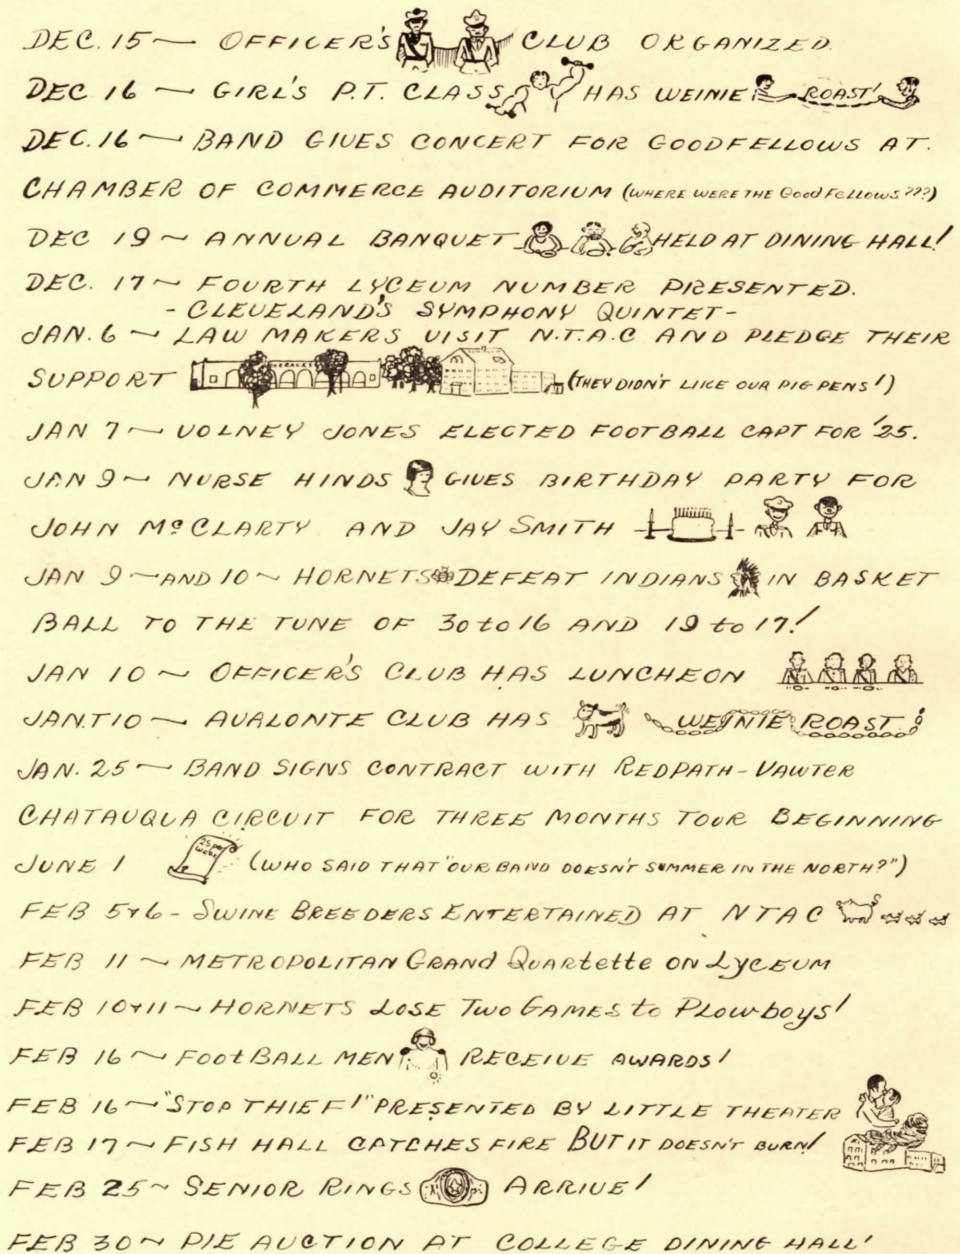 DEC. 15 — OFFICER'S CLUB ORGANIZED.
DEC 16 — GIRL'S P.T. CLASS HAS WEINIE ROAST!
DEC. 16 — BAND GIVES CONCERT FOR GOODFELLOWS AT.
CHAMBER OF COMMERCE AUDITORIUM (WHERE WERE THE Good Fellows???)
DEC 19 ~ ANNUAL BANQUET HELD AT DINING HALL!
DEC. 17 ~ FOURTH LYCEUM NUMBER PRESENTED.
- CLEVELAND'S SYMPHONY QUINTET -
JAN. 6 ~ LAW MAKERS VISIT N.T.A.C AND PLEDGE THEIR
SUPPORT (THEY DIDN'T LIKE OUR PIG PENS!)
JAN 7 — VOLNEY JONES ELECTED FOOTBALL CAPT FOR '25.
JAN 9 ~ NURSE HINDS GIVES BIRTHDAY PARTY FOR
JOHN McCLARTY AND JAY SMITH
JAN 9 — AND 10 ~ HORNETS DEFEAT INDIANS IN BASKET
BALL TO THE TUNE OF 30 to 16 AND 19 to 17!
JAN 10 ~ OFFICER'S CLUB HAS LUNCHEON
JAN.T10 ~ AVALONTE CLUB HAS WEINIE ROAST!
JAN. 25 — BAND SIGNS CONTRACT WITH REDPATH - VAWTER
CHATAUQUA CIRCUIT FOR THREE MONTHS TOUR BEGINNING
JUNE 1 25 per week (WHO SAID THAT "OUR BAND DOESN'T SUMMER IN THE NORTH?")
FEB 5+6 - SWINE BREEDERS ENTERTAINED AT NTAC
FEB 11 ~ METROPOLITAN GRAND QUARtette ON LYCEUM
FEB 10+11 ~ HORNETS LOSE TWO GAMES to PLOWboys!
FEB 16 ~ FOOtBALL MEN RECEIVE AWARDS!
FEB 16 ~ "STOP THIEF!" PRESENTED BY LITTLE THEATER
FEB 17 ~ FISH HALL CATCHES FIRE BUT IT DOESN'T BURN!
FEB 25 ~ SENIOR RINGS ARRIVE!
FEB 30 ~ PIE AUCTION AT COLLEGE DINING HALL!